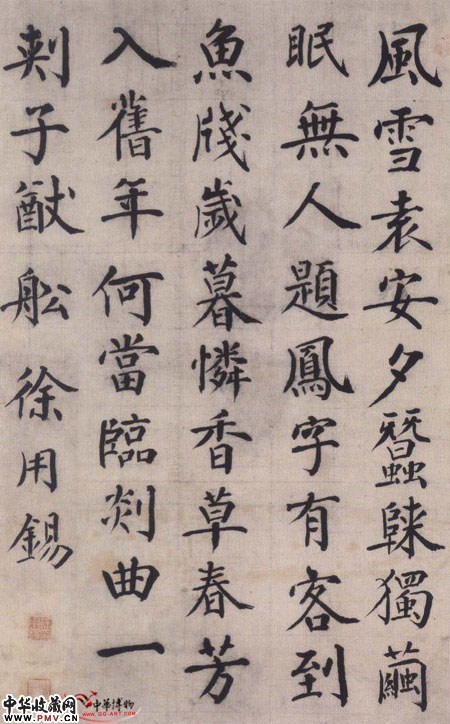 風雪袁安夕蠶獨繭
眠無人題鳳字有客到
魚牋歲暮憐香草春芳
入舊年何當臨剡曲一
刾子猷舩 徐用錫
中华收藏网
WWW.PMV.CN
中华博物
WWW.GG-ART.COM